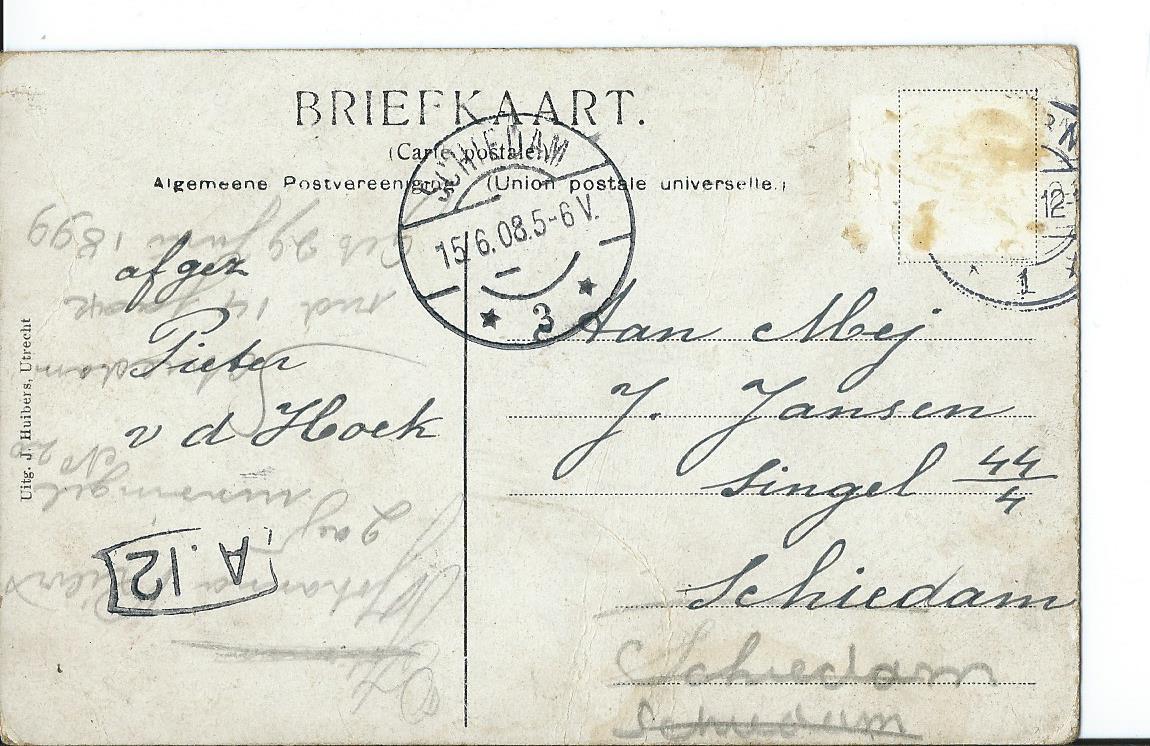 BRIEFKAART.
(Carte postale.)
Algemeene Postvereeniging (Union postale universelle.)
SCHIEDAM
15/6.08.5-6V.
3
12-
1
afgez
Pieter
v d Hoek
Aan Mej
J. Jansen
Singel 44/4
Schiedam
Schiedam
Schiedam
Uitg. J. Huibers, Utrecht
A.12
29 Juni 1899
Johanna